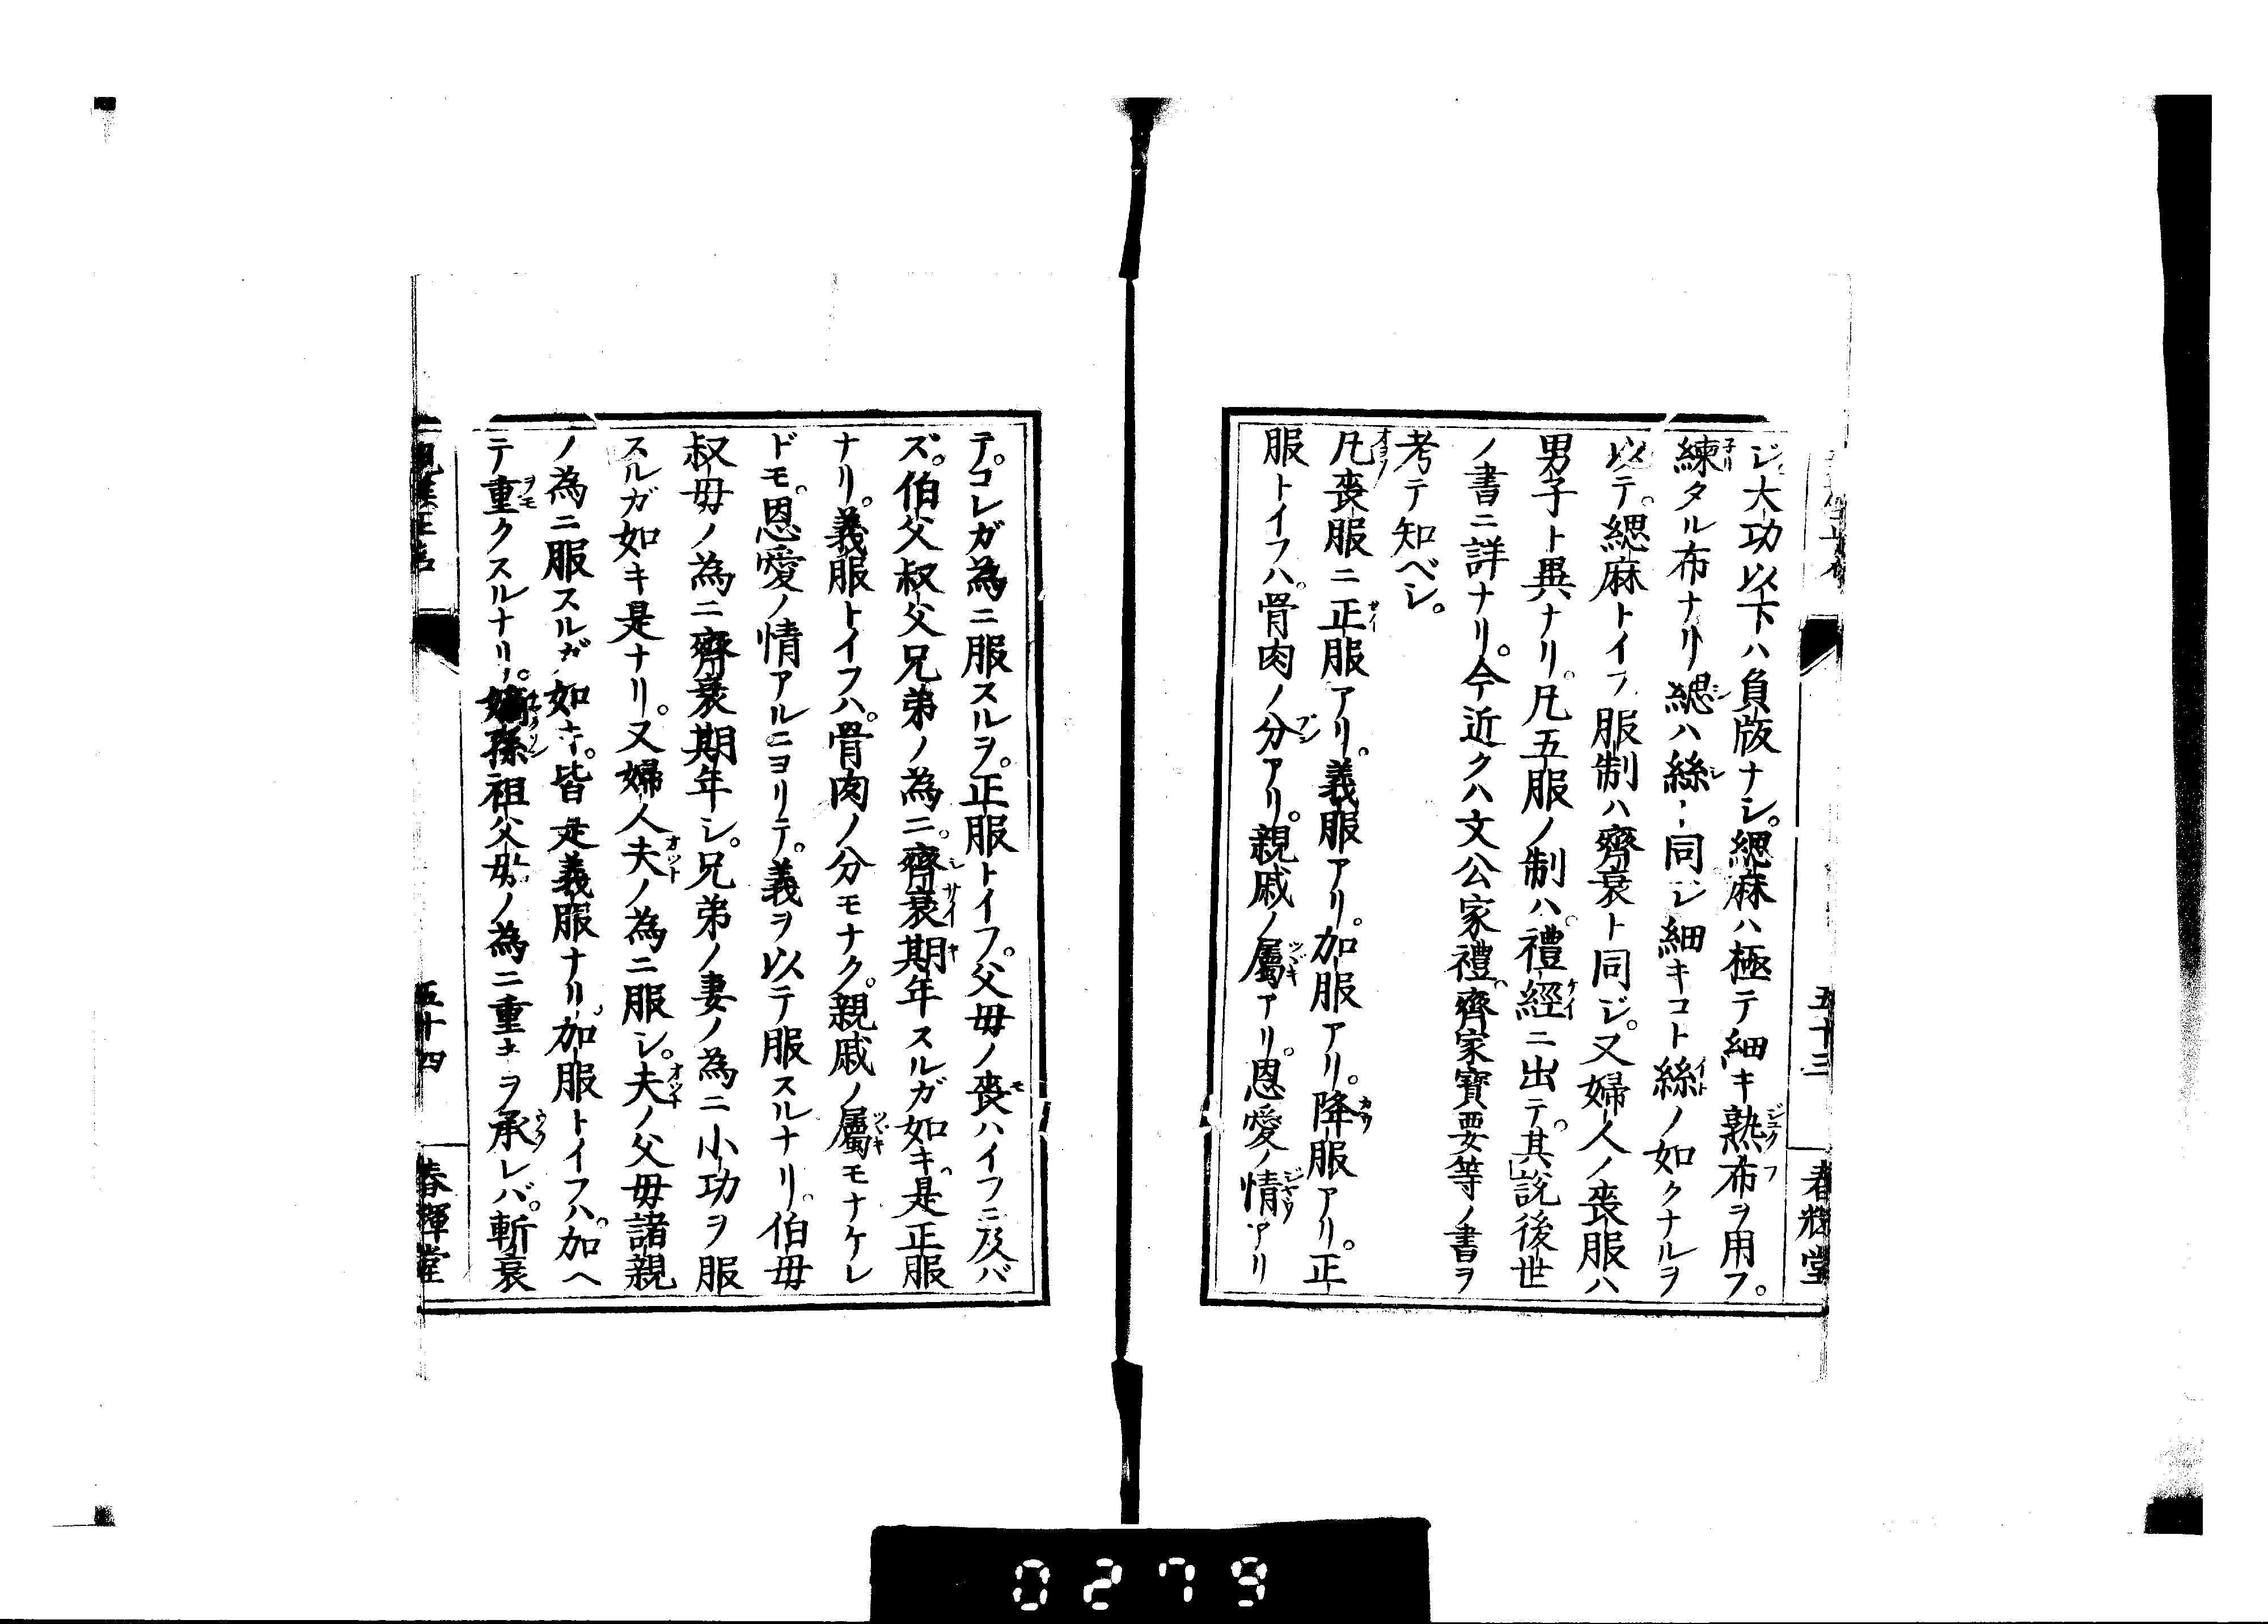 ジ。大功以下ハ負版ナシ。緦麻ハ極テ細キ熟布ヲ用フ。
練タル布ナリ緦ハ絲ト同シ細キコト絲ノ如クナルヲ
以テ。緦麻トイフ服制ハ齊衰ト同ジ。又婦人ノ喪服ハ
男子ト異ナリ。凡五服ノ制ハ。禮經ニ出テ。其說後世
ノ書ニ詳ナリ。今近クハ文公家禮。齊家寶要等ノ書ヲ
考テ知ベシ。
凡喪服ニ正服アリ。義服アリ。加服アリ。降服アリ。正
服トイフハ。骨肉ノ分アリ。親戚ノ屬アリ。恩愛ノ情アリ
五十三
春輝堂
テ。コレガ為ニ服スルヲ。正服トイフ。父毋ノ喪ハイフニ及バ
ズ。伯父叔父兄弟ノ為ニ。齊衰期年スルガ如キ。是正服
ナリ。義服トイフハ。骨肉ノ分モナク。親戚ノ屬モナケレ
ドモ。恩愛ノ情アルニヨリテ。義ヲ以テ服スルナリ。伯毋
叔毋ノ為ニ齊衰期年シ。兄弟ノ妻ノ為ニ小功ヲ服
スルガ如キ是ナリ。又婦人夫ノ為ニ服シ。夫ノ父毋諸親
ノ為ニ服スルガ如キ。皆是義服ナリ。加服トイフハ。加ヘ
テ重クスルナリ。嫡孫祖父毋ノ為ニ重キヲ承レバ。斬衰
五十四
春輝堂
0279